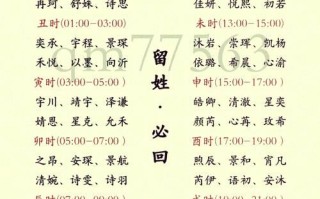 冉珂、舒姝、诗思
丑时(01:00-03:00)
奕承、宇程、景琛
禾悦、以墨、向沂
寅时(03:00-05:00)
宇川、靖宇、泽谦
婧恩、星克、允禾
卯时(05:00-07:00)
之昂、安琛、景航
清婉、诗雯、诗羽
留姓·必回
佳妍、悦熙、初若
未时(13:00-15:00)
沐岩、崇珲、凯杨
依璐、希晨、心渝
申时(15:00-17:00)
皓卿、清澈、星奕
颜芮、心苒、玫希
酉时(17:00-19:00)
煦辰、景和、宵凡
芮伊、语初、安沫
qm77563